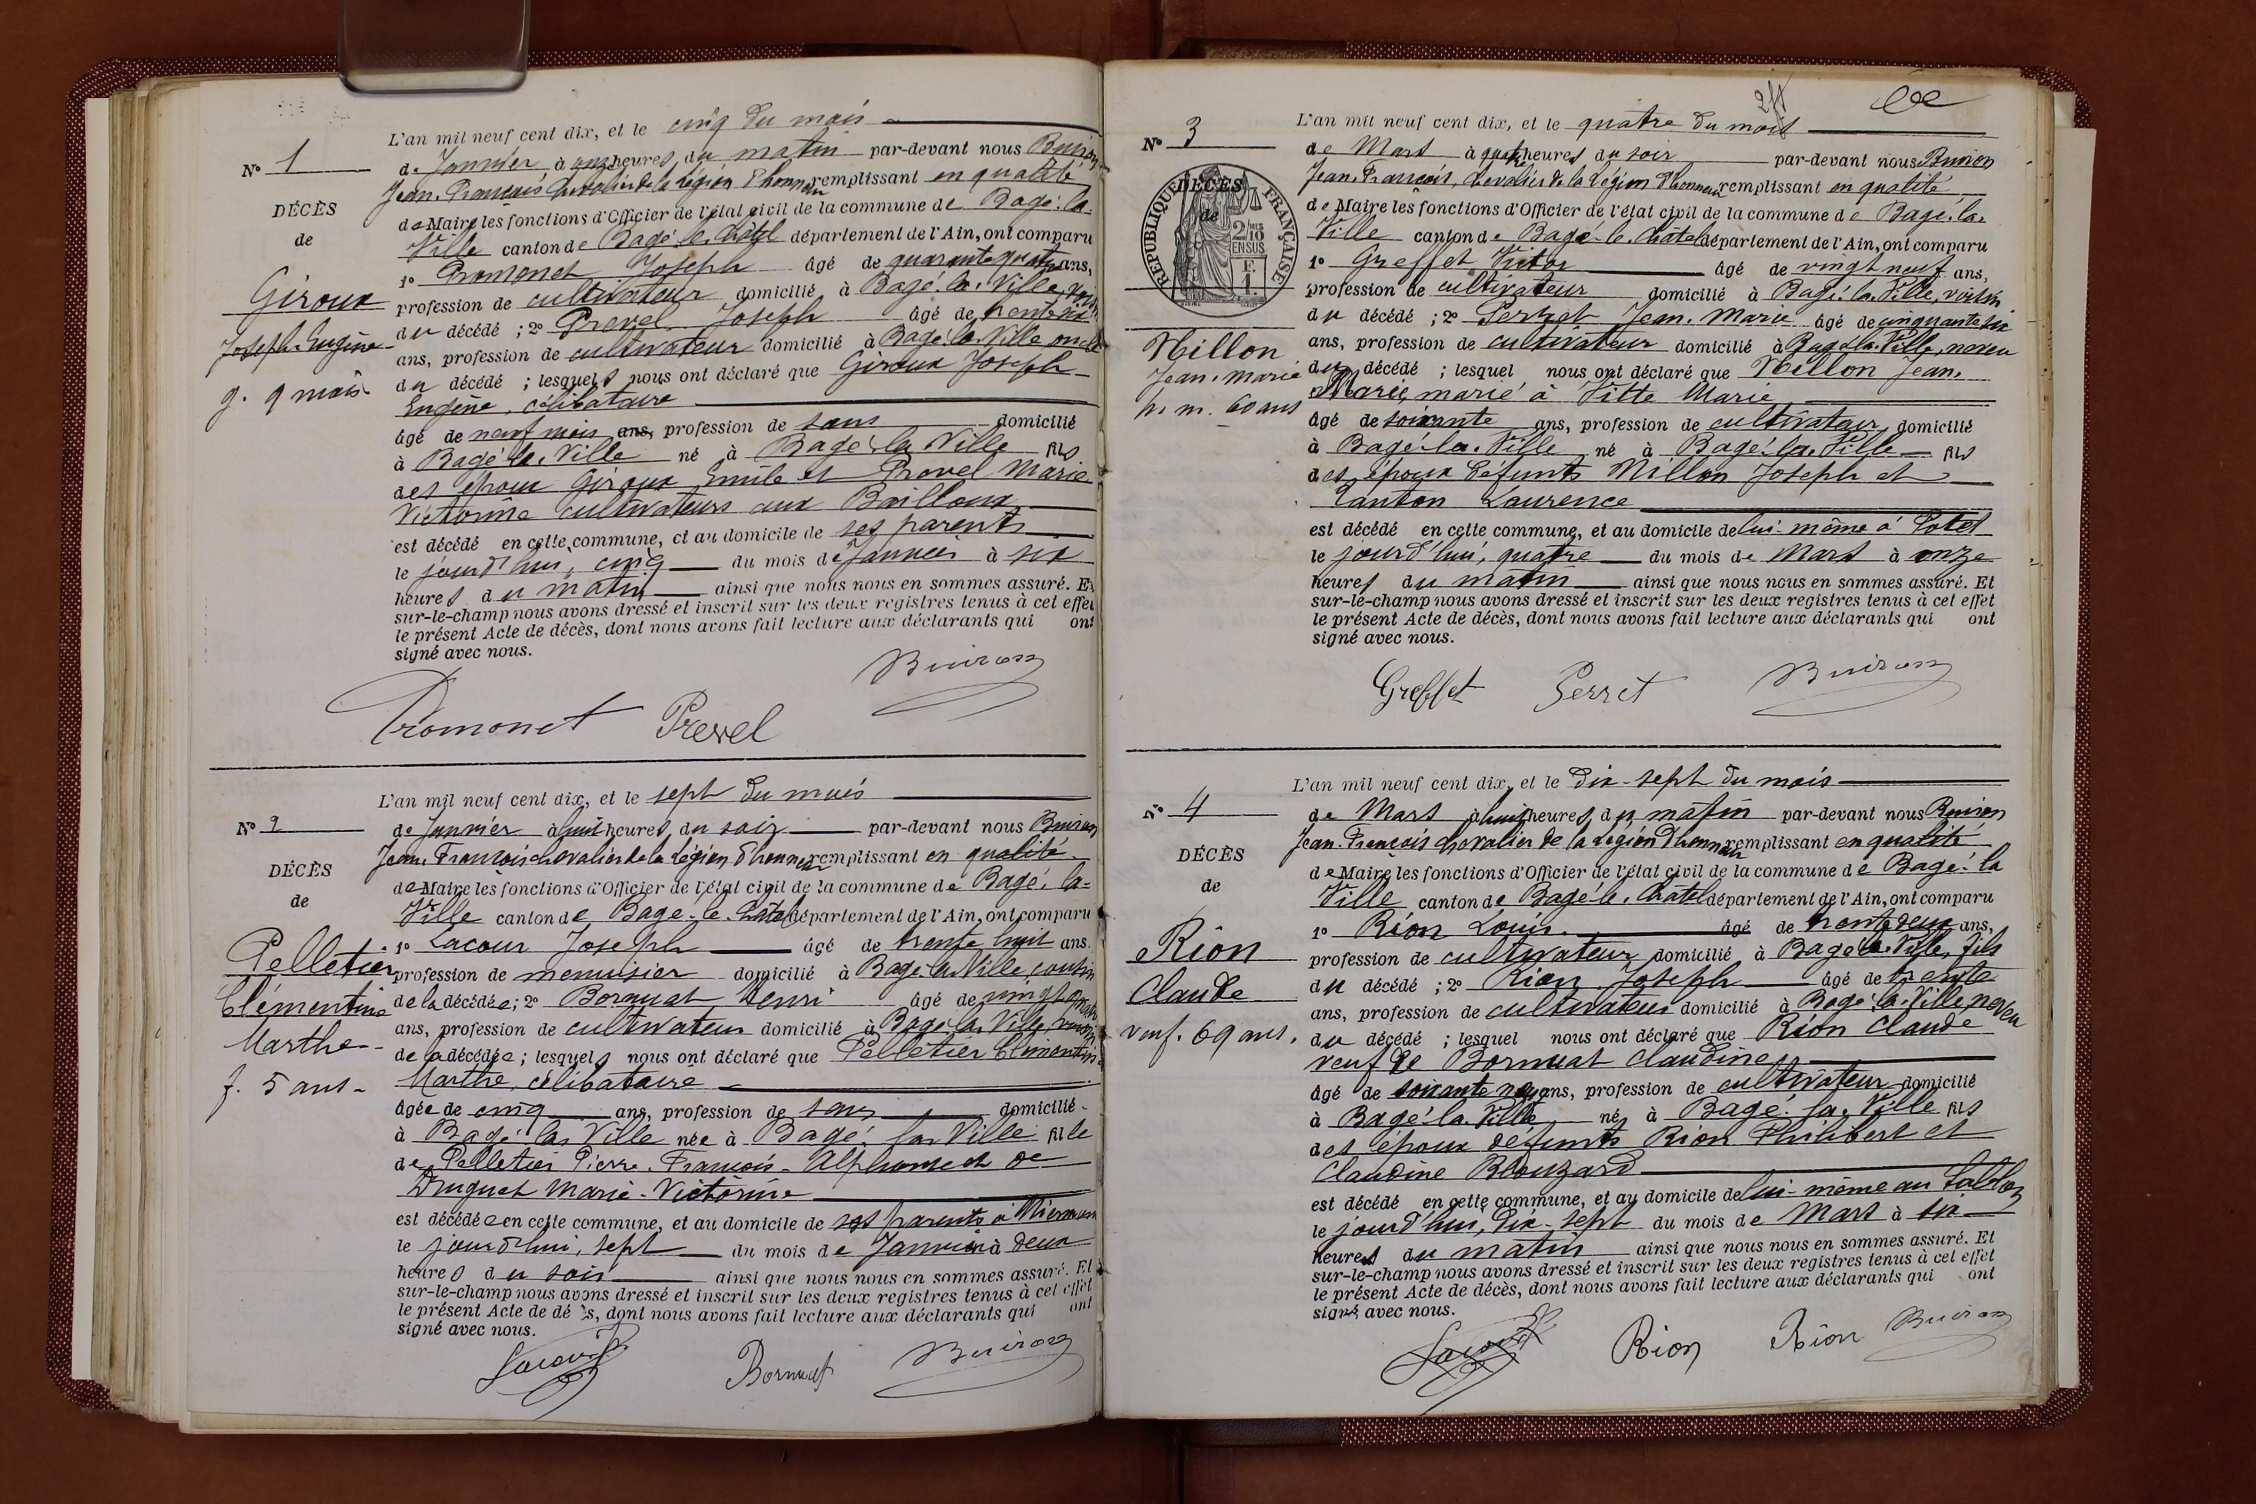 L'an mil neuf cent dix, et le cinq du mois
N° 1
de Janvier à onze heures du matin par-devant nous Buiron
Jean-François chevalier de la Légion d'honneur remplissant en qualité
DÉCÈS
de Maire les fonctions d'Officier de l'état civil de la commune de Bagé-la-
de
Ville canton de Bagé-le-Châtel département de l'Ain, ont comparu
1° Promonet Joseph âgé de quarante quatre ans,
Giroux
profession de cultivateur domicilié à Bagé-la-Ville, voisin
du décédé ; 2° Prevel Joseph âgé de trente six
Joseph-Eugène
ans, profession de cultivateur domicilié à Bagé-la-Ville oncle
du décédé ; lesquels nous ont déclaré que Giroux Joseph
g. 9 mois
Eugène, célibataire
âgé de neuf mois ans, profession de sans domicilié
à Bagé-la-Ville né à Bagé-la-Ville fils
des époux Giroux Emile et Prevel Marie
Victorine cultivateurs aux Bailloux
est décédé en cette commune, et au domicile de ses parents
le jourd'hui, cinq du mois de Janvier à six
heures du matin ainsi que nous nous en sommes assuré. Et
sur-le-champ nous avons dressé et inscrit sur les deux registres tenus à cet effet
le présent Acte de décès, dont nous avons fait lecture aux déclarants qui ont
signé avec nous.
Buiron
Promonet Prevel
L'an mil neuf cent dix, et le sept du mois
N° 2
de Janvier à huit heures du soir par-devant nous Buiron
Jean-François chevalier de la Légion d'honneur remplissant en qualité
DÉCÈS
de Maire les fonctions d'Officier de l'état civil de la commune de Bagé-la-
de
Ville canton de Bagé-le-Châtel département de l'Ain, ont comparu
Pelletier
1° Lacour Joseph âgé de trente huit ans.
profession de menuisier domicilié à Bagé-la-Ville, cousin
Clémentine
de la décédée ; 2° Bornuat Henri âgé de vingt
ans, profession de cultivateur domicilié à Bagé-la-Ville
Marthe
de la décédée ; lesquels nous ont déclaré que Pelletier Clémentine
f. 5 ans
Marthe, célibataire
âgée de cinq ans, profession de sans domicilié
à Bagé-la-Ville née à Bagé-la-Ville fille
de Pelletier Pierre-François-Alphonse et de
Druguet Marie-Victorine
est décédée en cette commune, et au domicile de ses parents à
le jourd'hui, sept du mois de Janvier à deux
heures du soir ainsi que nous nous en sommes assuré. Et
sur-le-champ nous avons dressé et inscrit sur les deux registres tenus à cet effet
le présent Acte de dé s, dont nous avons fait lecture aux déclarants qui ont
signé avec nous.
Lacour Bornuat Buiron
L'an mil neuf cent dix, et le quatre du mois
N° 3
de Mars à quatre heures du soir par-devant nous Buiron
Jean-François, chevalier de la Légion d'honneur remplissant en qualité
RÉPUBLIQUE FRANÇAISE
DÉCÈS
de
2/10 EN SUS
de Maire les fonctions d'Officier de l'état civil de la commune de Bagé-la-
Ville canton de Bagé-le-Châtel département de l'Ain, ont comparu
1° Greffet Victor âgé de vingt neuf ans,
profession de cultivateur domicilié à Bagé-la-Ville, voisin
du décédé ; 2° Perret Jean-Marie âgé de cinquante six
Nillon
ans, profession de cultivateur domicilié à Bagé-la-Ville, neveu
Jean-Marie
du décédé ; lesquel nous ont déclaré que Nillon Jean-
h. m. 60 ans
Marie, marié à Pitte Marie
âgé de soixante ans, profession de cultivateur domicilié
à Bagé-la-Ville né à Bagé-la-Ville fils
des époux défunts Nillon Joseph et
Panton Laurence
est décédé en cette commune, et au domicile de lui-même à Potel
le jourd'hui, quatre du mois de Mars à onze
heures du matin ainsi que nous nous en sommes assuré. Et
sur-le-champ nous avons dressé et inscrit sur les deux registres tenus à cet effet
le présent Acte de décès, dont nous avons fait lecture aux déclarants qui ont
signé avec nous.
Greffet Perret Buiron
L'an mil neuf cent dix, et le dix-sept du mois
N° 4
de Mars à huit heures du matin par-devant nous Buiron
Jean-François chevalier de la Légion d'honneur remplissant en qualité
DÉCÈS
de Maire les fonctions d'Officier de l'état civil de la commune de Bagé-la
de
Ville canton de Bagé-le-Châtel département de l'Ain, ont comparu
1° Rion Louis âgé de trente deux ans,
Rion
profession de cultivateur domicilié à Bagé-la-Ville, fils
Claude
du décédé ; 2° Rion Joseph âgé de trente
ans, profession de cultivateur domicilié à Bagé-la-Ville, neveu
veuf. 69 ans.
du décédé ; lesquel nous ont déclaré que Rion Claude
veuf de Bornuat Claudine
âgé de soixante neuf ans, profession de cultivateur domicilié
à Bagé-la-Ville né à Bagé-la-Ville fils
des époux défunts Rion Philibert et
Claudine Brouzard
est décédé en cette commune, et au domicile de lui-même au Sablon
le jourd'hui, dix-sept du mois de Mars à six
heures du matin ainsi que nous nous en sommes assuré. Et
sur-le-champ nous avons dressé et inscrit sur les deux registres tenus à cet effet
le présent Acte de décès, dont nous avons fait lecture aux déclarants qui ont
signé avec nous.
Lacour Rion Rion Buiron